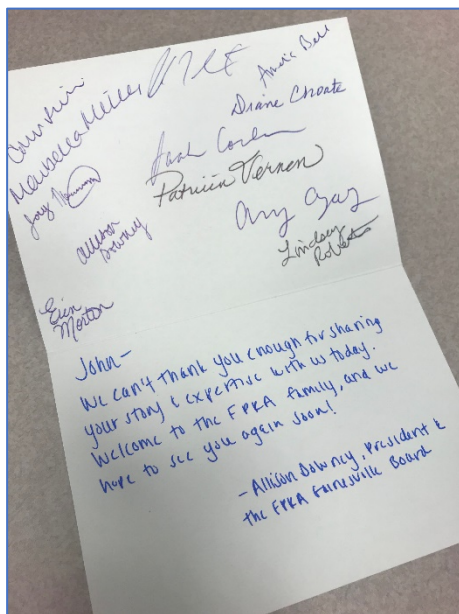 Annie Bell
Diane Choate
Patricia Vernon
Allison
Downey
Lindsey
Roberts
Erin
Morton
John-
We can't thank you enough for sharing
your story & expertise with us today.
Welcome to the FPRA family, and we
hope to see you again soon!
-Allison Downey, President &
the FPRA Gainesville Board